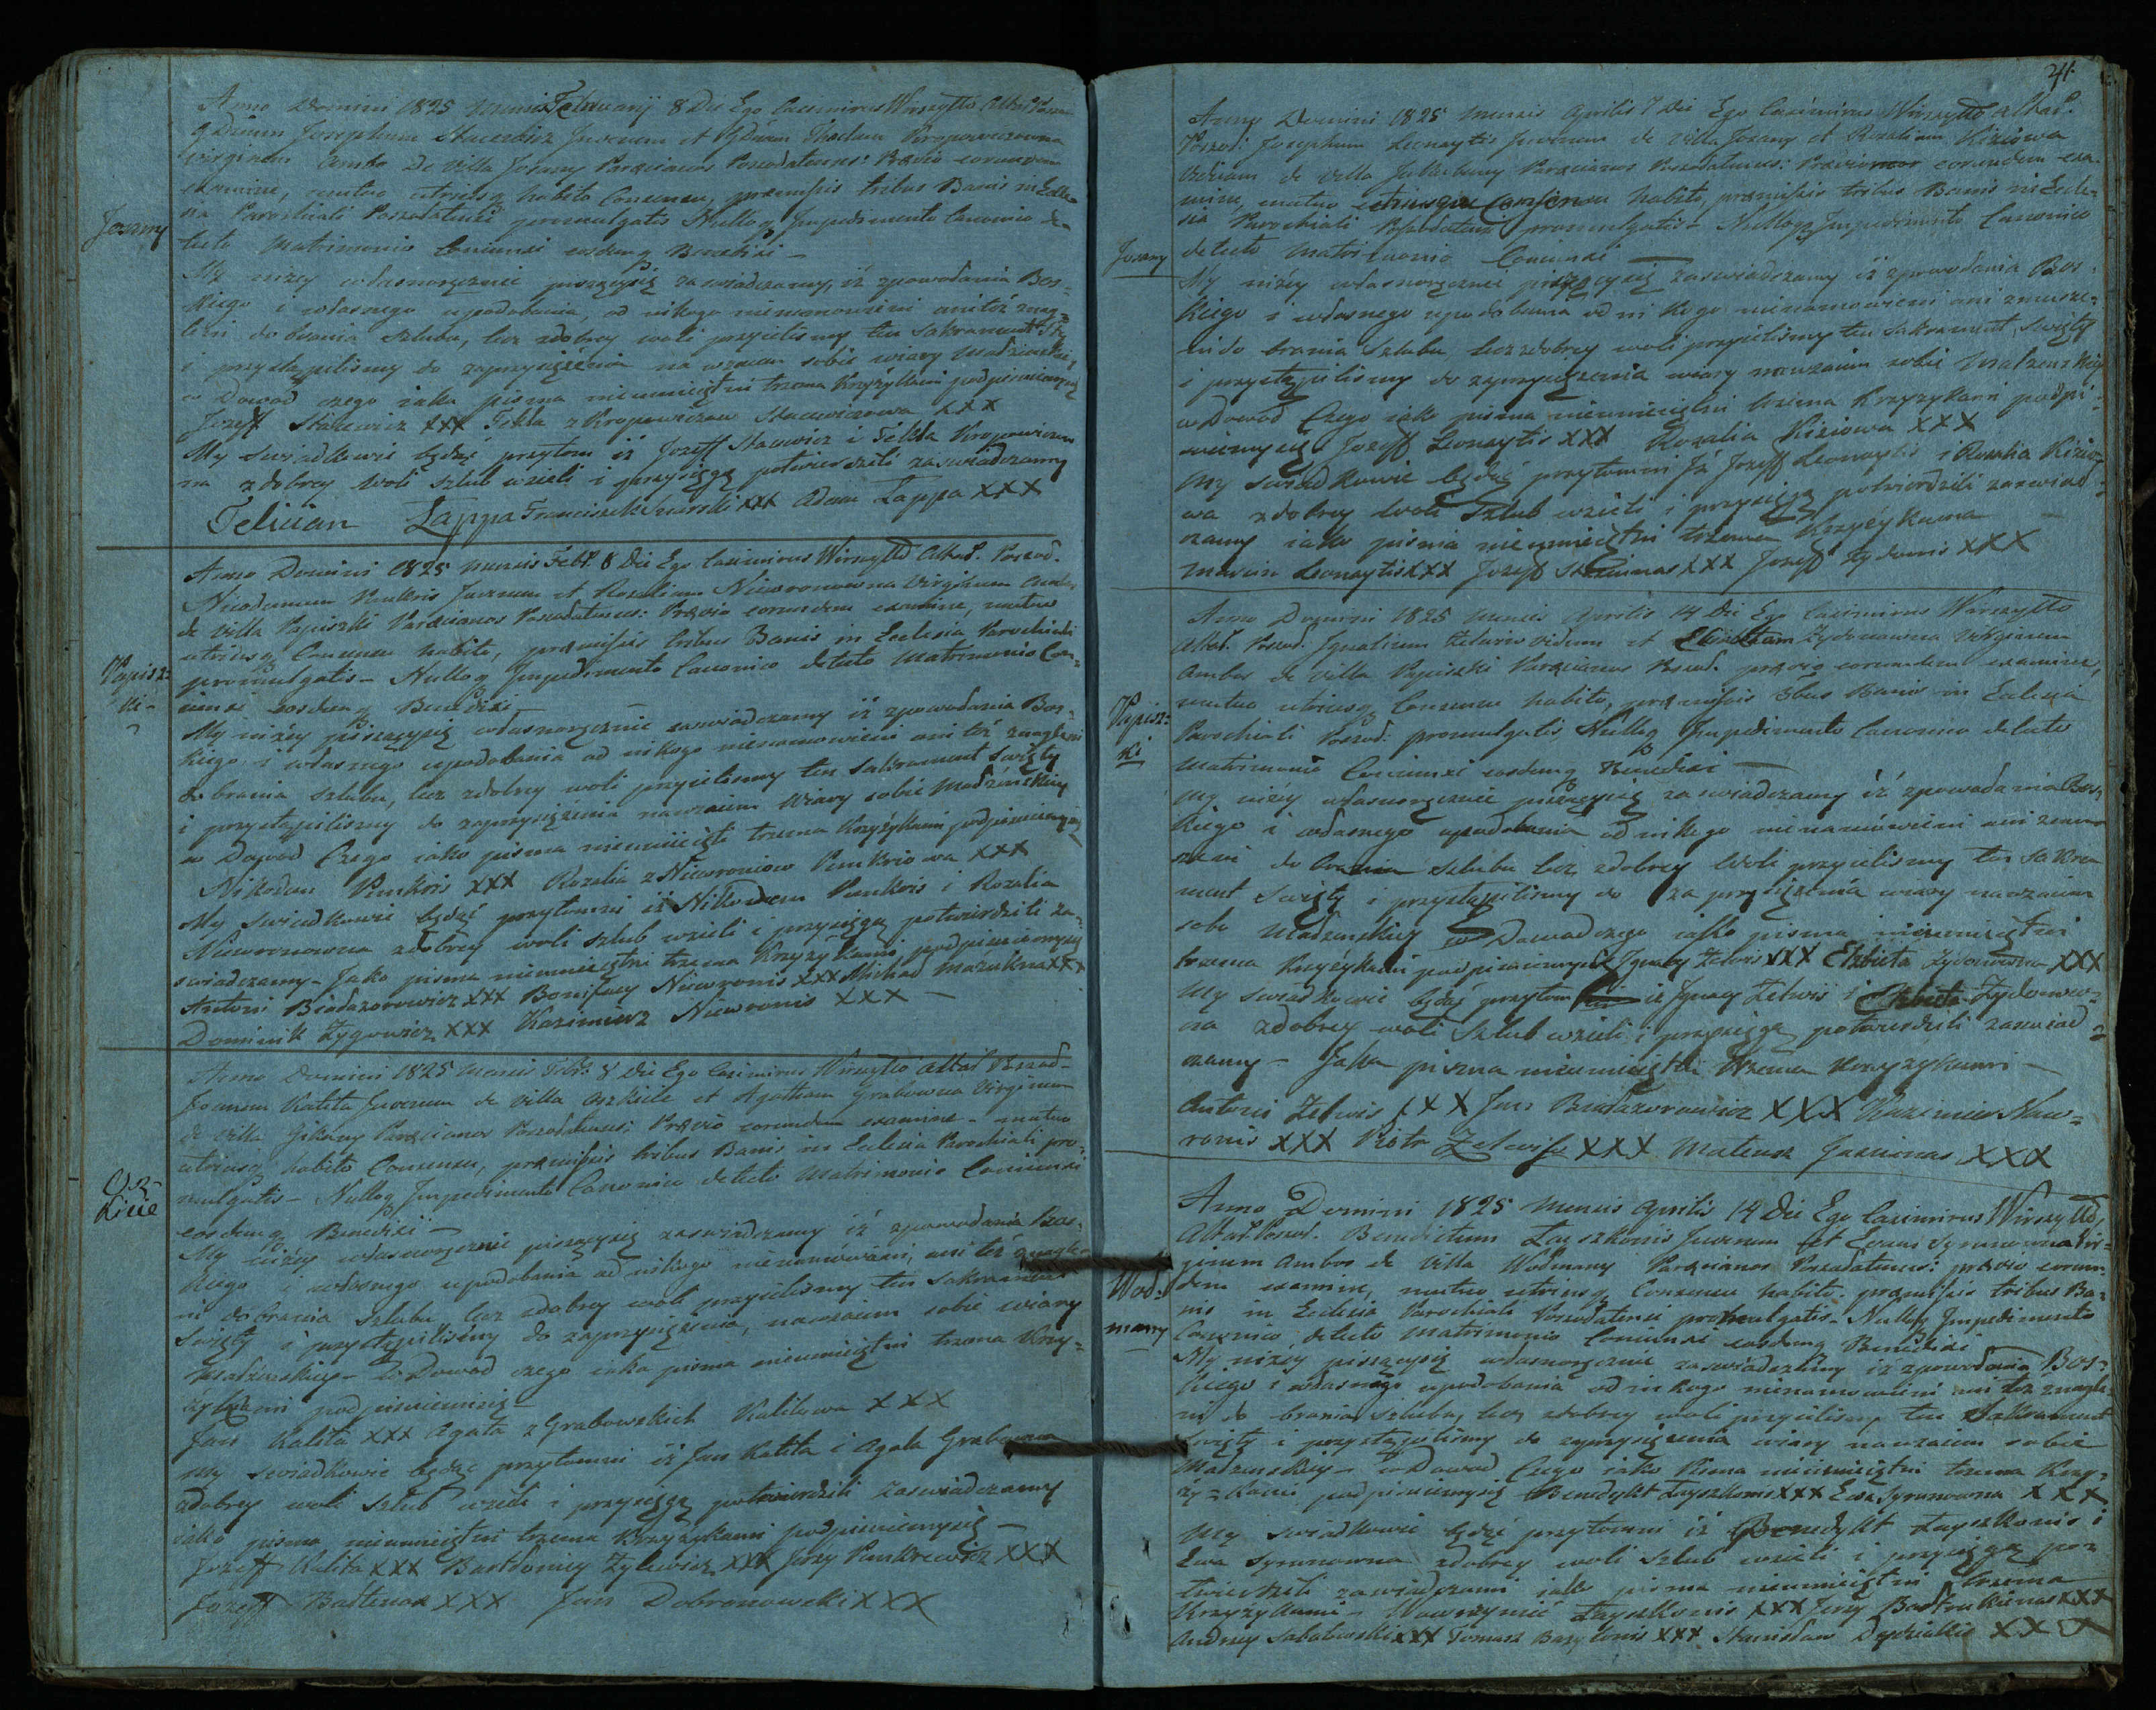 Anno Domini 1825 Mensis Februarij 8 Die Ego Casimirus Wirszyłło Altar. Poszw.
Gdnum Josephum Stacewicz Juvenem et Gdnam Theclam Kropowiczowna
Virginem Ambo De Villa Josany Paræcianos Poszwatunens: Prævio eorumdem
examine, mutuo utriusq habito Consensu, præmissis tribus Banis in Eccle=
sia Parochiali Poszwatunsi promulgatis Nulloq Impedimento Canonico de=
Josany
tecto Matrimonio Conjunxi eosdemq Benedixi –
My niżey własnoręcznie piszącysię zaświadczamy, iż zpowodania Bos=
kiego i własnego upodobania, od nikogo nienamowieni anitóż znag=
leni do brania szlubu, lecz zdobrey woli przyieliśmy ten Sakrament Sty
i przystąpiliśmy do zaprzysiężenia na wzaiem sobie wiary Małżenskiey
w Dowod czego iako pisma nieumieiętni trzema Krzyżykami podpisuiemysię
Jozeff Stacewicz XXX Tekla z Kropowiczow Stacewiczowa XXX
My Swiadkowie będąc przytom iż Jozeff Stacewicz i Tekla Kropowiczow
na zdobrey woli szlub wzieli i przysięgą potwierdzili zaświadczamy
Felician Łappa Franciszek XXX Adam Łappa XXX
Anno Domini 1825 Mensis Febr. 8 Die Ego Casimirus Wirszyłło Altar. Poszw.
Nicodemum Punkris Juvenem et Rosaliam Niewronowna Virginem Ambos
de Villa Papiszki Paræcianos Poszwatunens: Prævio eorumdem examine, mutuo
utriusq Consensu habito, præmissis tribus Banis in Ecclesia Parochiali
Papisz=
ki –
promulgatis – Nulloq Impedimento Canonico detecto Matrimonio Con=
iunxi eosdemq Benedixi –
My niżey piszącysię własnoręcznie zaświadczamy iż zpowodania Bos=
kiego i własnego upodobania od nikogo nienamowieni ani też znagleni
do brania szlubu, lecz zdobrey woli przyieliśmy ten Sakrament Swięty
i przystąpiliśmy do zaprzysiężenia nawzaiem Wiary sobie Małżenskiey
w Dowod Czego iako pisma nieumieiętni trzema Krzyżykami podpisuiemysię
Nikodem Punkris XXX Rozalia z Niewroniow Punkriowa XXX
My Swiadkowie będąc przytomni iż Nikodem Punkris i Rozalia
Niewronowna zdobrey woli szlub wzieli i przysięgą potwierdzili za=
swiadczamy – Jako pisma nieumieiętni trzema Krzyżykami podpisuiemysię
Antoni Biadazorowicz XXX Bonifacy Niewronis XXX Michał Mazukna XXX
Dominik Zygowicz XXX Kazimierz Niewronis XXX –
Anno Domini 1825 Mensis Febr: 8 Die Ego Casimirus Wirszyłło Altar Poszw –
Joannem Kalita Juvenem de Villa Oszkicie et Agatham Grabowna Virginem
de Villa Gikany Paræcianos Poszwatunens: Prævio eorumdem examine – mutuo
utriusq habito Consensu, præmissis tribus Banis in Ecclesia Parochiali pro=
mulgatis – Nulloq Impedimento Canonico detecto Matrimonio Coniunxi
Osz-
kicie
eosdemq Benedixi –
My niżey własnoręcznie piszącysię zaświadczamy iż zpowodania Bos=
kiego i własnego upodobania od nikogo nienamówieni, ani też znagle=
ni do brania Szlubu, lecz zdobrey woli przyieliśmy ten Sakrament
Swięty i przystąpiliśmy do zaprzysiężenia, nawzaiem sobie wiary
Małżenskiey – w Dowod czego iako pisma nieumieiętni trzema Krzy=
żykami podpisuiemysię –
Jan Kalita XXX Agata z Grabowskich Kalitowa XXX
My swiadkowie będąc przytomni iż Jan Kalita i Agata Grabowna
zdobrey woli Szlub wzieli i przysięgą potwierdzili zaświadczamy
iako pisma nieumieiętni trzema Krzyżykami podpisuiemysię –
Jozeff Kalita XXX Bartłomiey Zylewicz XXX Jerzy Punkrewicz XXX
Jozeff XXX Jan Dobronowski XXX
41.
Anno Domini 1825 Mensis Aprilis 7 Die Ego Casimirus Wirszyłło Altar.
Poszw: Josephum Leonaytis Juvenem de Villa Josany et Rosaliam Kiziowa
Viduam de Villa Paræcianos Poszwatunens: Prævio eorumdem exa=
mine, mutuo utriusque Consensu habito, præmissis tribus Banis in Eccle=
sia Parochiali Poszwatunsi promulgatis – Nulloq Impedimento Canonico
Josany
detecto Matrimonio Coniunxi –
My niżey własnoręcznie piszącysię zaświadczamy iż zpowodania Bos=
kiego i własnego upodobania od nikogo nienamowieni ani zmusze=
ni do brania Szlubu lecz zdobrey woli przyieliśmy ten Sakrament Swięty
i przystąpiliśmy do zaprzysiężenia wiary nawzaiem sobie Małżenskiey
w Dowód Czego iako pisma nieumieiętni trzema Krzyżykami podpi=
suiemysię Jozeff Leonaytis XXX Rozalia Kiziowa XXX
My Swiadkowie będąc przytomni Iż Jozeff Leonaytis i Rozalia Kizio=
wa zdobrey woli Szlub wzieli i przysięgą potwierdzili zaświad=
czamy iako pisma nieumieiętni trzema Krzyżykama –
Marcin Leonaytis XXX Jozeff XXX Jozeff Zydonis XXX
Anno Domini 1825 Mensis Aprilis 14 Die Ego Casimirus Wirszyłło
Altar. Poszw. Ignatium Zelwis viduum et Elisabetham Zydonowna Virginem
Ambos de Villa Papiszki Paræcianos Poszw. prævio eorumdem examine,
mutuo utriusq Consensu habito, præmissis tribus Banis in Ecclesia
Papisz=
ki
Parochiali Poszw: promulgatis Nulloq Impedimento Canonico detecto
Matrimonio Coniunxi eosdemq Benedixi –
My niżey własnoręcznie piszącysię zaświadczamy iż zpowodania Bos=
kiego i własnego upodobania od nikogo nienamówieni ani zmu=
szeni do brania szlubu lecz zdobrey Woli przyieliśmy ten Sakra
ment Swięty i przystąpiliśmy do zaprzysiężenia wiary nawzaiem
sobie Małżenskiey w Dowod czego iako pisma nieumieiętni
trzema Krzyżykami podpisuiemysię Ignacy Zelwis XXX Elżbieta Zydonowna XXX
My Swiadkowie będąc przytom iż Ignacy Zelwis i Elżbieta Zydonow=
na zdobrey woli Szlub wzieli i przysięgą potwierdzili zaświad=
czamy – Jako pisma nieumieiętni trzema Krzyżykami –
Antoni Zelwis XXX Jan Biadazorowicz XXX Kazimier Niew=
ronis XXX Piotr Zelwis XXX Mateusz XXX
Anno Domini 1825 Mensis Aprilis 14 Die Ego Casimirus Wirszyłło,
Altar. Poszw. Benedictum Łayszkonis Juvenem et Evam Symonowna Vir=
ginem Ambos de Villa Wodmany Paræcianos Poszwatunens: prævio eorum=
Wod=
many
dem examine, mutuo utriusq Consensu habito. præmissis tribus Ba=
nis in Ecclesia Parochiali Poszwatunsi promulgatis – Nulloq Impedimento
Canonico detecto Matrimonio Coniunxi eosdemq Benedixi
My niżey piszącysię własnoręcznie zaświadczamy iż zpowodania Bos=
kiego i własnego upodobania od nikogo nienamowieni ani też znagle=
ni do brania szlubu, lecz zdobrey woli przyieliśmy ten Sakrament
Swięty i przystąpiliśmy do zaprzysiężenia wiary nawzaiem sobie
Małżenskiey – w Dowod Czego iako Pisma nieumieiętni trzema Krzy=
ży=kami podpisuiemysię Benedykt Łayszkonis XXX Ewa Symonowna XXX
My Swiadkowie będąc przytomni iż Benedykt Łayszkonis i
Ewa Symonowna zdobrey woli szlub wzieli i przysięgą po=
twierdzili zaświadczami iako pisma nieumieiętni trzema
Krzyżykami – Wawrzyniec Łayszkonis XXX Jerzy XXX
Andrzey Sabatowski XXX Tomasz XXX Stanisław XXX